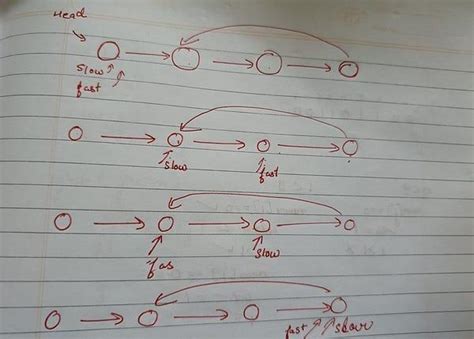 Head
slow
fast
slow
fast
fas
slow
fast slow